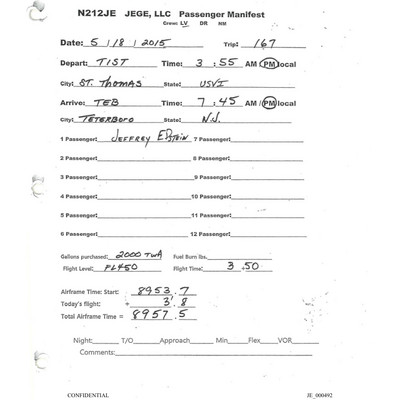 N212JE JEGE, LLC Passenger Manifest
Crew: LV DR NM
Date: 5 / 8 / 2015 Trip: 167
Depart: TIST Time: 3 : 55 AM / PM local
City: ST. THOMAS State: USVI
Arrive: TEB Time: 7 : 45 AM / PM local
City: TETERBORO State: N.J.
1 Passenger: JEFFREY EPSTEIN 7 Passenger:
2 Passenger: 8 Passenger:
3 Passenger: 9 Passenger:
4 Passenger: 10 Passenger:
5 Passenger: 11 Passenger:
6 Passenger: 12 Passenger:
Gallons purchased: 2000 Fuel Burn lbs.
Flight Level: FL450 Flight Time: 3 . 50
Airframe Time: Start: 8953 . 7
Today's flight: + 3 . 8
Total Airframe Time = 8957 . 5
Night: T/O Approach Min Flex VOR
Comments:
CONFIDENTIAL JE_000492